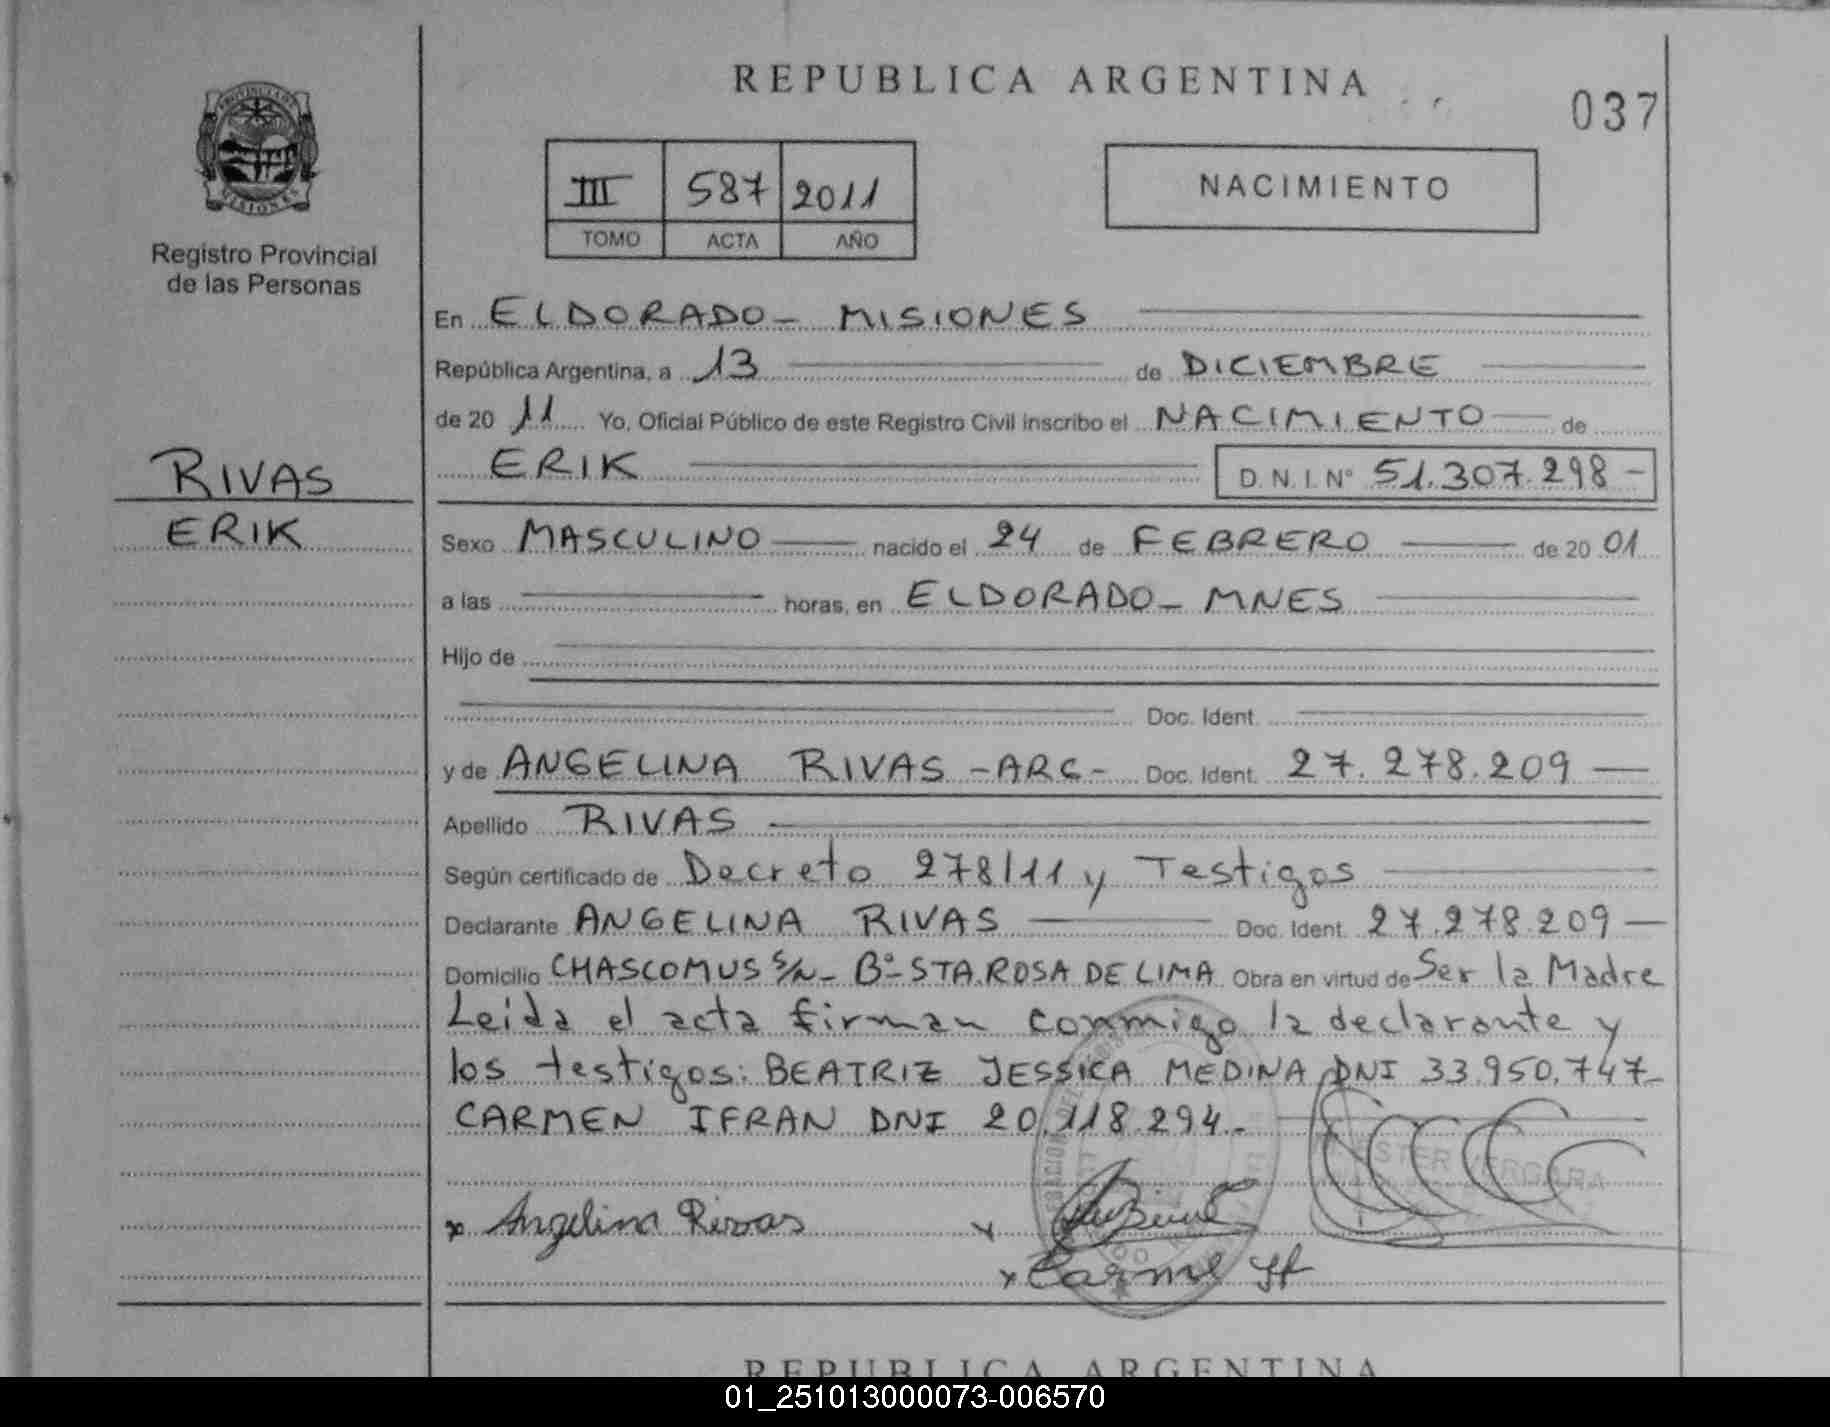 REPUBLICA ARGENTINA
037
PROVINCIA DE MISIONES
Registro Provincial
de las Personas
III 587 2011
TOMO ACTA AÑO
NACIMIENTO
En ELDORADO - MISIONES
República Argentina, a 13 de DICIEMBRE
de 20 11 Yo, Oficial Público de este Registro Civil inscribo el NACIMIENTO de
RIVAS
ERIK
ERIK D. N. I. N° 51.307.298 -
Sexo MASCULINO nacido el 24 de FEBRERO de 20 01
a las horas, en ELDORADO - MNES
Hijo de
Doc. Ident.
y de ANGELINA RIVAS - ARG - Doc. Ident. 27.278.209
Apellido RIVAS
Según certificado de Decreto 278/11 y Testigos
Declarante ANGELINA RIVAS Doc. Ident. 27.278.209
Domicilio CHASCOMUS S/N - B° - STA. ROSA DE LIMA Obra en virtud de Ser la Madre
Leida el acta firman conmigo la declarante y
los testigos: BEATRIZ JESSICA MEDINA DNI 33.950.747 -
CARMEN IFRAN DNI 20.118.294. -
VERGARA
x Angelina Rivas x
x Carme If
REPUBLICA ARGENTINA
01_251013000073-006570